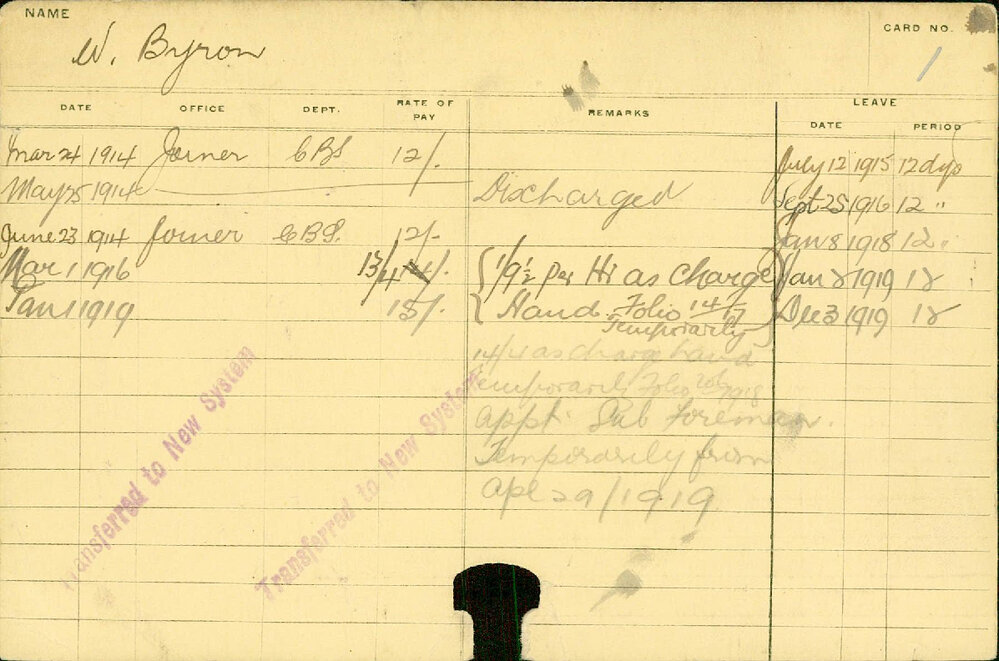 NAME
W. Byron
CARD NO.
1
DATE OFFICE DEPT. RATE OF PAY REMARKS LEAVE
DATE PERIOD
Mar 24 1914 Joiner CBS 12/. July 12 1915 12 dys
May 25 1914 Discharged Sept 25 1916 12 "
June 23 1914 Joiner CBS. 12/- Jan 8 1918 12 "
Mar 1 1916 13/4 14/. 1/9½ per Hr as Charge Jan 2 1919 12
Jan 1 1919 15/. Hand Folio 14/17 Dec 3 1919 12
Temporarily
14/4 as charge hand
temporarily Folio 1918
appt. Sub foreman.
Temporarily from
Apl 29/1919
Transferred to New System
Transferred to New System